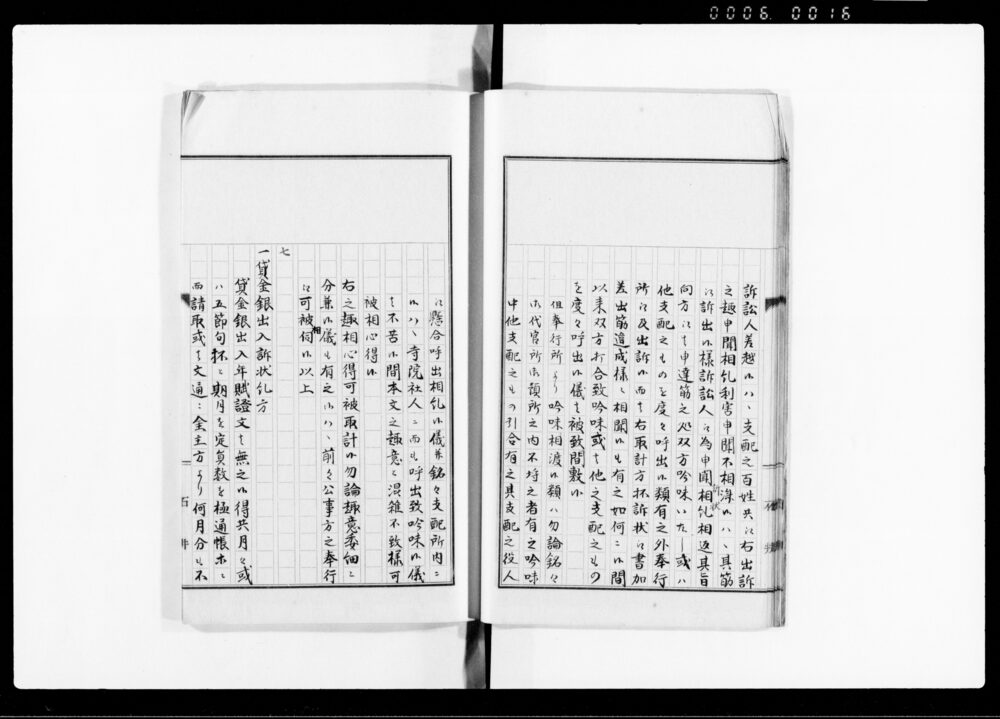 0006 0016
訴訟人差越候ハヽ支配之百姓共江右出訴
之趣申聞相糺利害申聞不相済候ハヽ其筋
江訴出候様訴訟人江為申聞相糺相返其旨
訴状
向方江も申達筋之処双方吟味いたし或ハ
他支配之ものを度々呼出候類有之外奉行
所江及出訴候而も右取計方抔訴状江書加
差出筋違成様ニ相聞候も有之如何ニ候間
以来双方打合致吟味或ハ他之支配之もの
を度々呼出候儀ハ被致間敷候
但奉行所より吟味相渡候類ハ勿論銘々
御代官所御預所之内不埒之者有之吟味
中他支配之もの引合有之其支配之役人
江懸合呼出相糺候儀并銘々支配所内ニ
候ハヽ寺院社人ニ而も呼出致吟味候儀
ハ不苦候間本文之趣意ニ混雑不致様可
被相心得候
右之趣相心得可被取計候勿論趣意委細ニ
分兼候儀も有之候ハヽ前々公事方之奉行
江可被相伺候以上
七
一貸金銀出入訴状糺方
貸金銀出入年賦證文ハ無之候得共月々或
ハ五節句抔と期月を定員数を極通帳等ニ
而請取或ハ文通ニ金主方より何月分も不